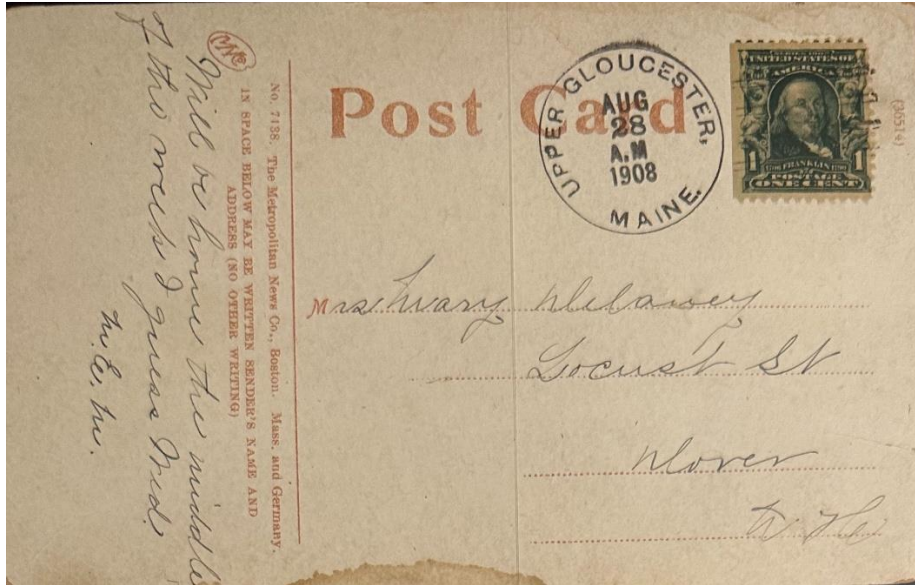 Post Card
UPPER GLOUCESTER,
AUG
28
A.M
1908
MAINE.
SERIES 1902
UNITED STATES OF
AMERICA
1706 FRANKLIN 1790
1 POSTAGE 1
ONE CENT
(36514)
Mrs Mary Delaney
Locust St
Dover
N. H.
No. 7138. The Metropolitan News Co., Boston. Mass. and Germany.
IN SPACE BELOW MAY BE WRITTEN SENDER'S NAME AND
ADDRESS (NO OTHER WRITING)
Will be home the middle
of the week I guess Wed.
M. E. M.